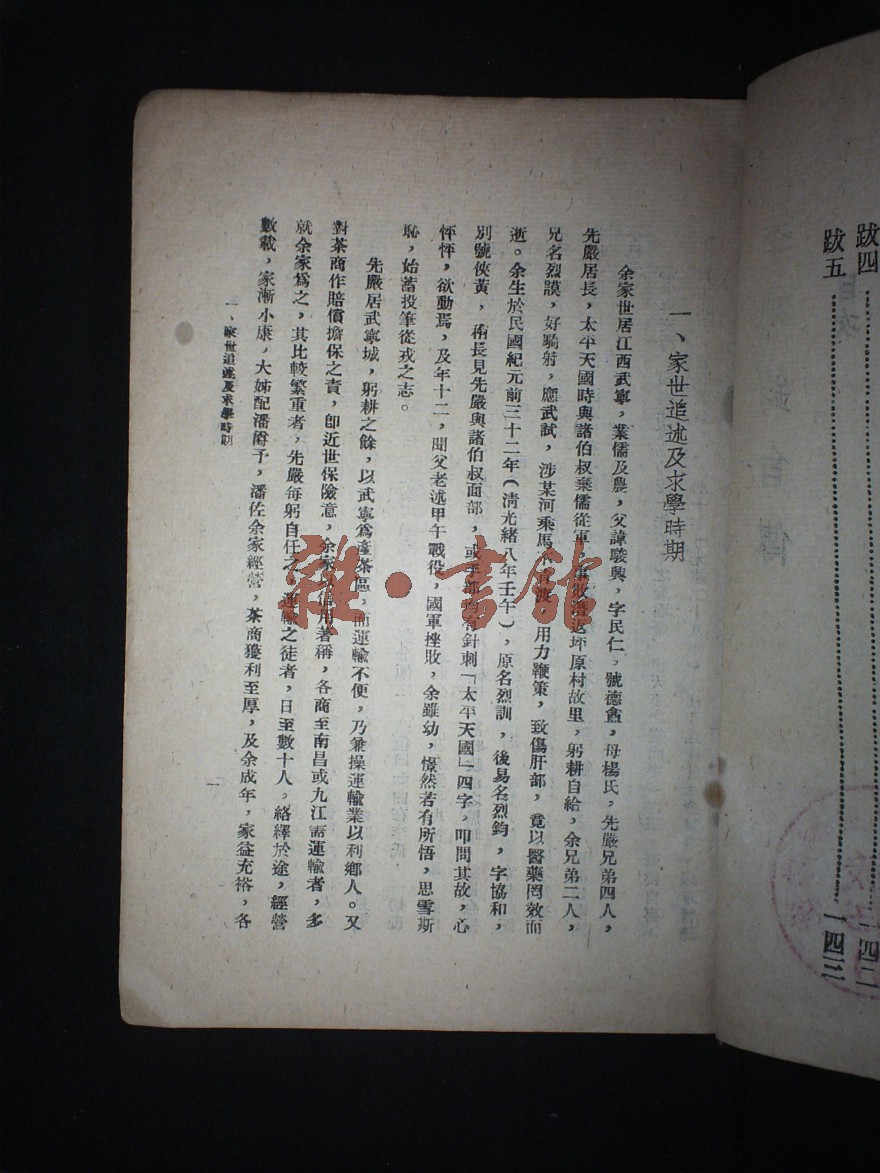 跋四 一四二
跋五 一四三
一、家世追述及求學時期
余家世居江西武寧，業儒及農，父諱駿興，字民仁，號德盦，母楊氏，先嚴兄弟四人，
先嚴居長，太平天國時與諸伯叔棄儒從軍，事敗潛返坪原村故里，躬耕自給，余兄弟二人，
兄名烈謨，好騎射，應武試，涉某河乘馬 用力鞭策，致傷肝部，竟以醫藥罔效而
逝。余生於民國紀元前三十二年（清光緒八年壬午），原名烈訓，後易名烈鈞，字協和，
別號俠黃，稍長見先嚴與諸伯叔面部，或手部 有針刺「太平天國」四字，叩問其故，心
怦怦，欲動焉，及年十二，聞父老述甲午戰役，國軍挫敗，余雖幼，憬然若有所悟，思雪斯
恥，始蓄投筆從戎之志。
先嚴居武寧城，躬耕之餘，以武寧爲產茶區，而運輸不便，乃兼操運輸業以利鄉人。又
對茶商作賠償擔保之責，卽近世保險意，余家以信用著稱，各商至南昌或九江需運輸者，多
就余家爲之，其比較繁重者，先嚴每躬自任之，運輸之徒者，日至數十人，絡繹於途，經營
數載，家漸小康，大姊配潘 予，潘佐余家經營，茶商獲利至厚，及余成年，家益充裕，各
一、家世追述及求學時期
一
雜·書館